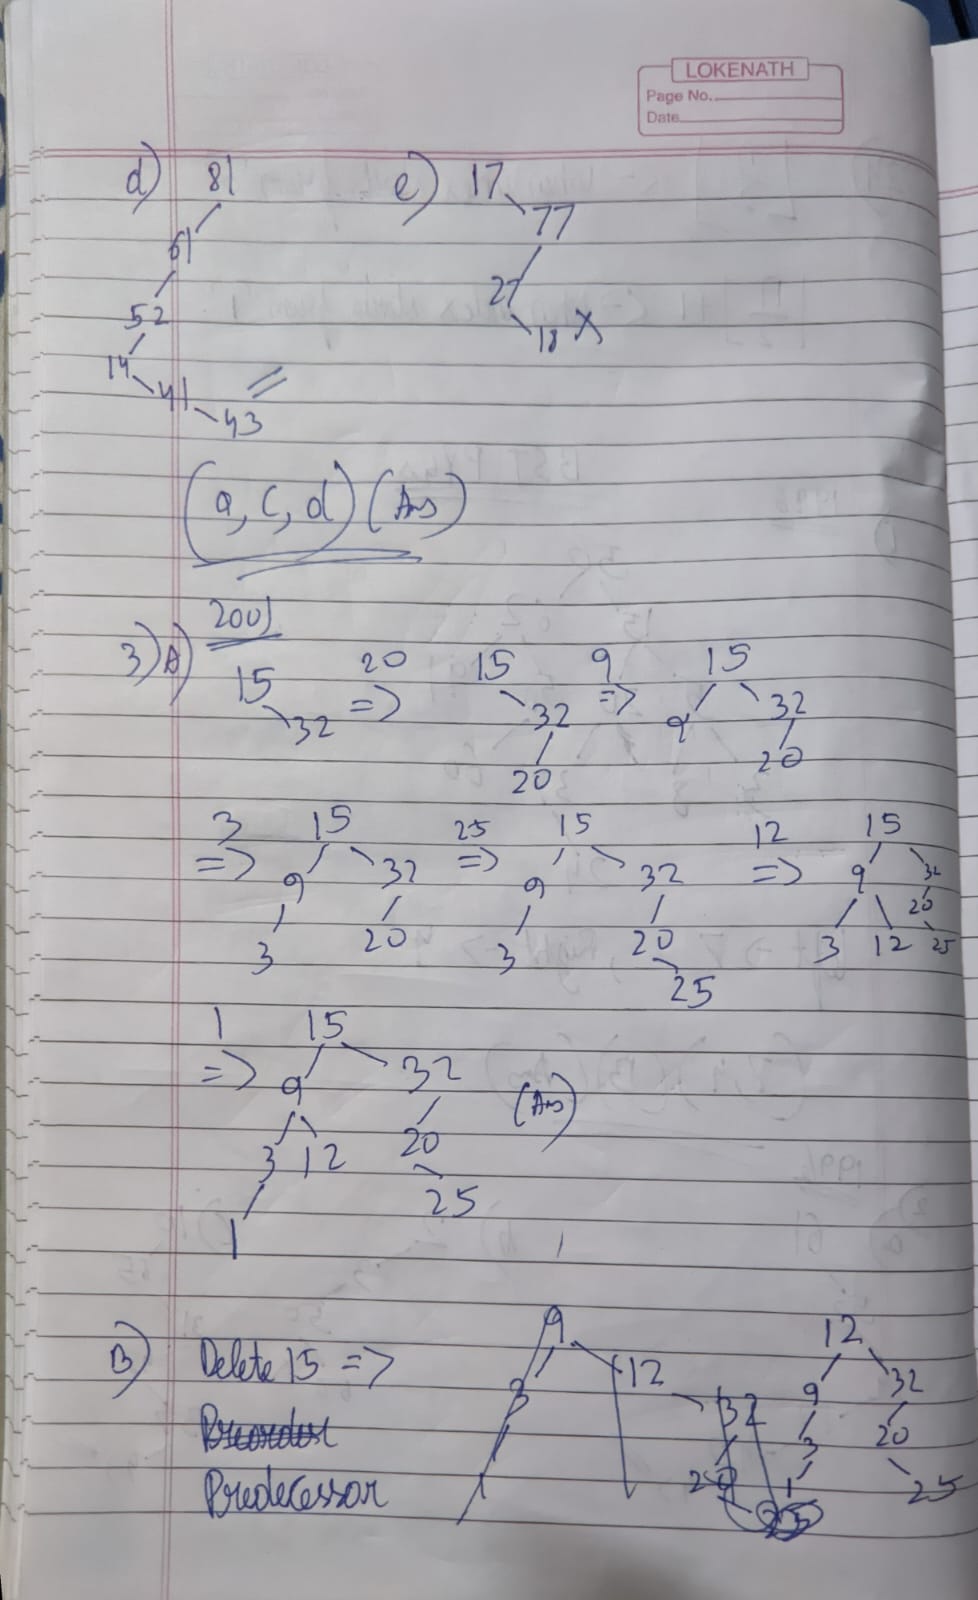 LOKENATH
Page No.
Date
d) 81
61
52
14
41
43
e) 17
77
27
18 X
(a, c, d) (Ans)
2001
3) A)
15
32
20 =>
15
32
20
9 =>
15
9 32
20
3 =>
15
9 32
3 20
25 =>
15
9 32
3 20
25
12 =>
15
9 32
20
3 12 25
1 =>
15
9 32
3 12 20
25
1
(Ans)
B) Delete 15 =>
Preorder
Predecessor
9
3 12
32
1 20
25
12
9 32
3 20
1 25